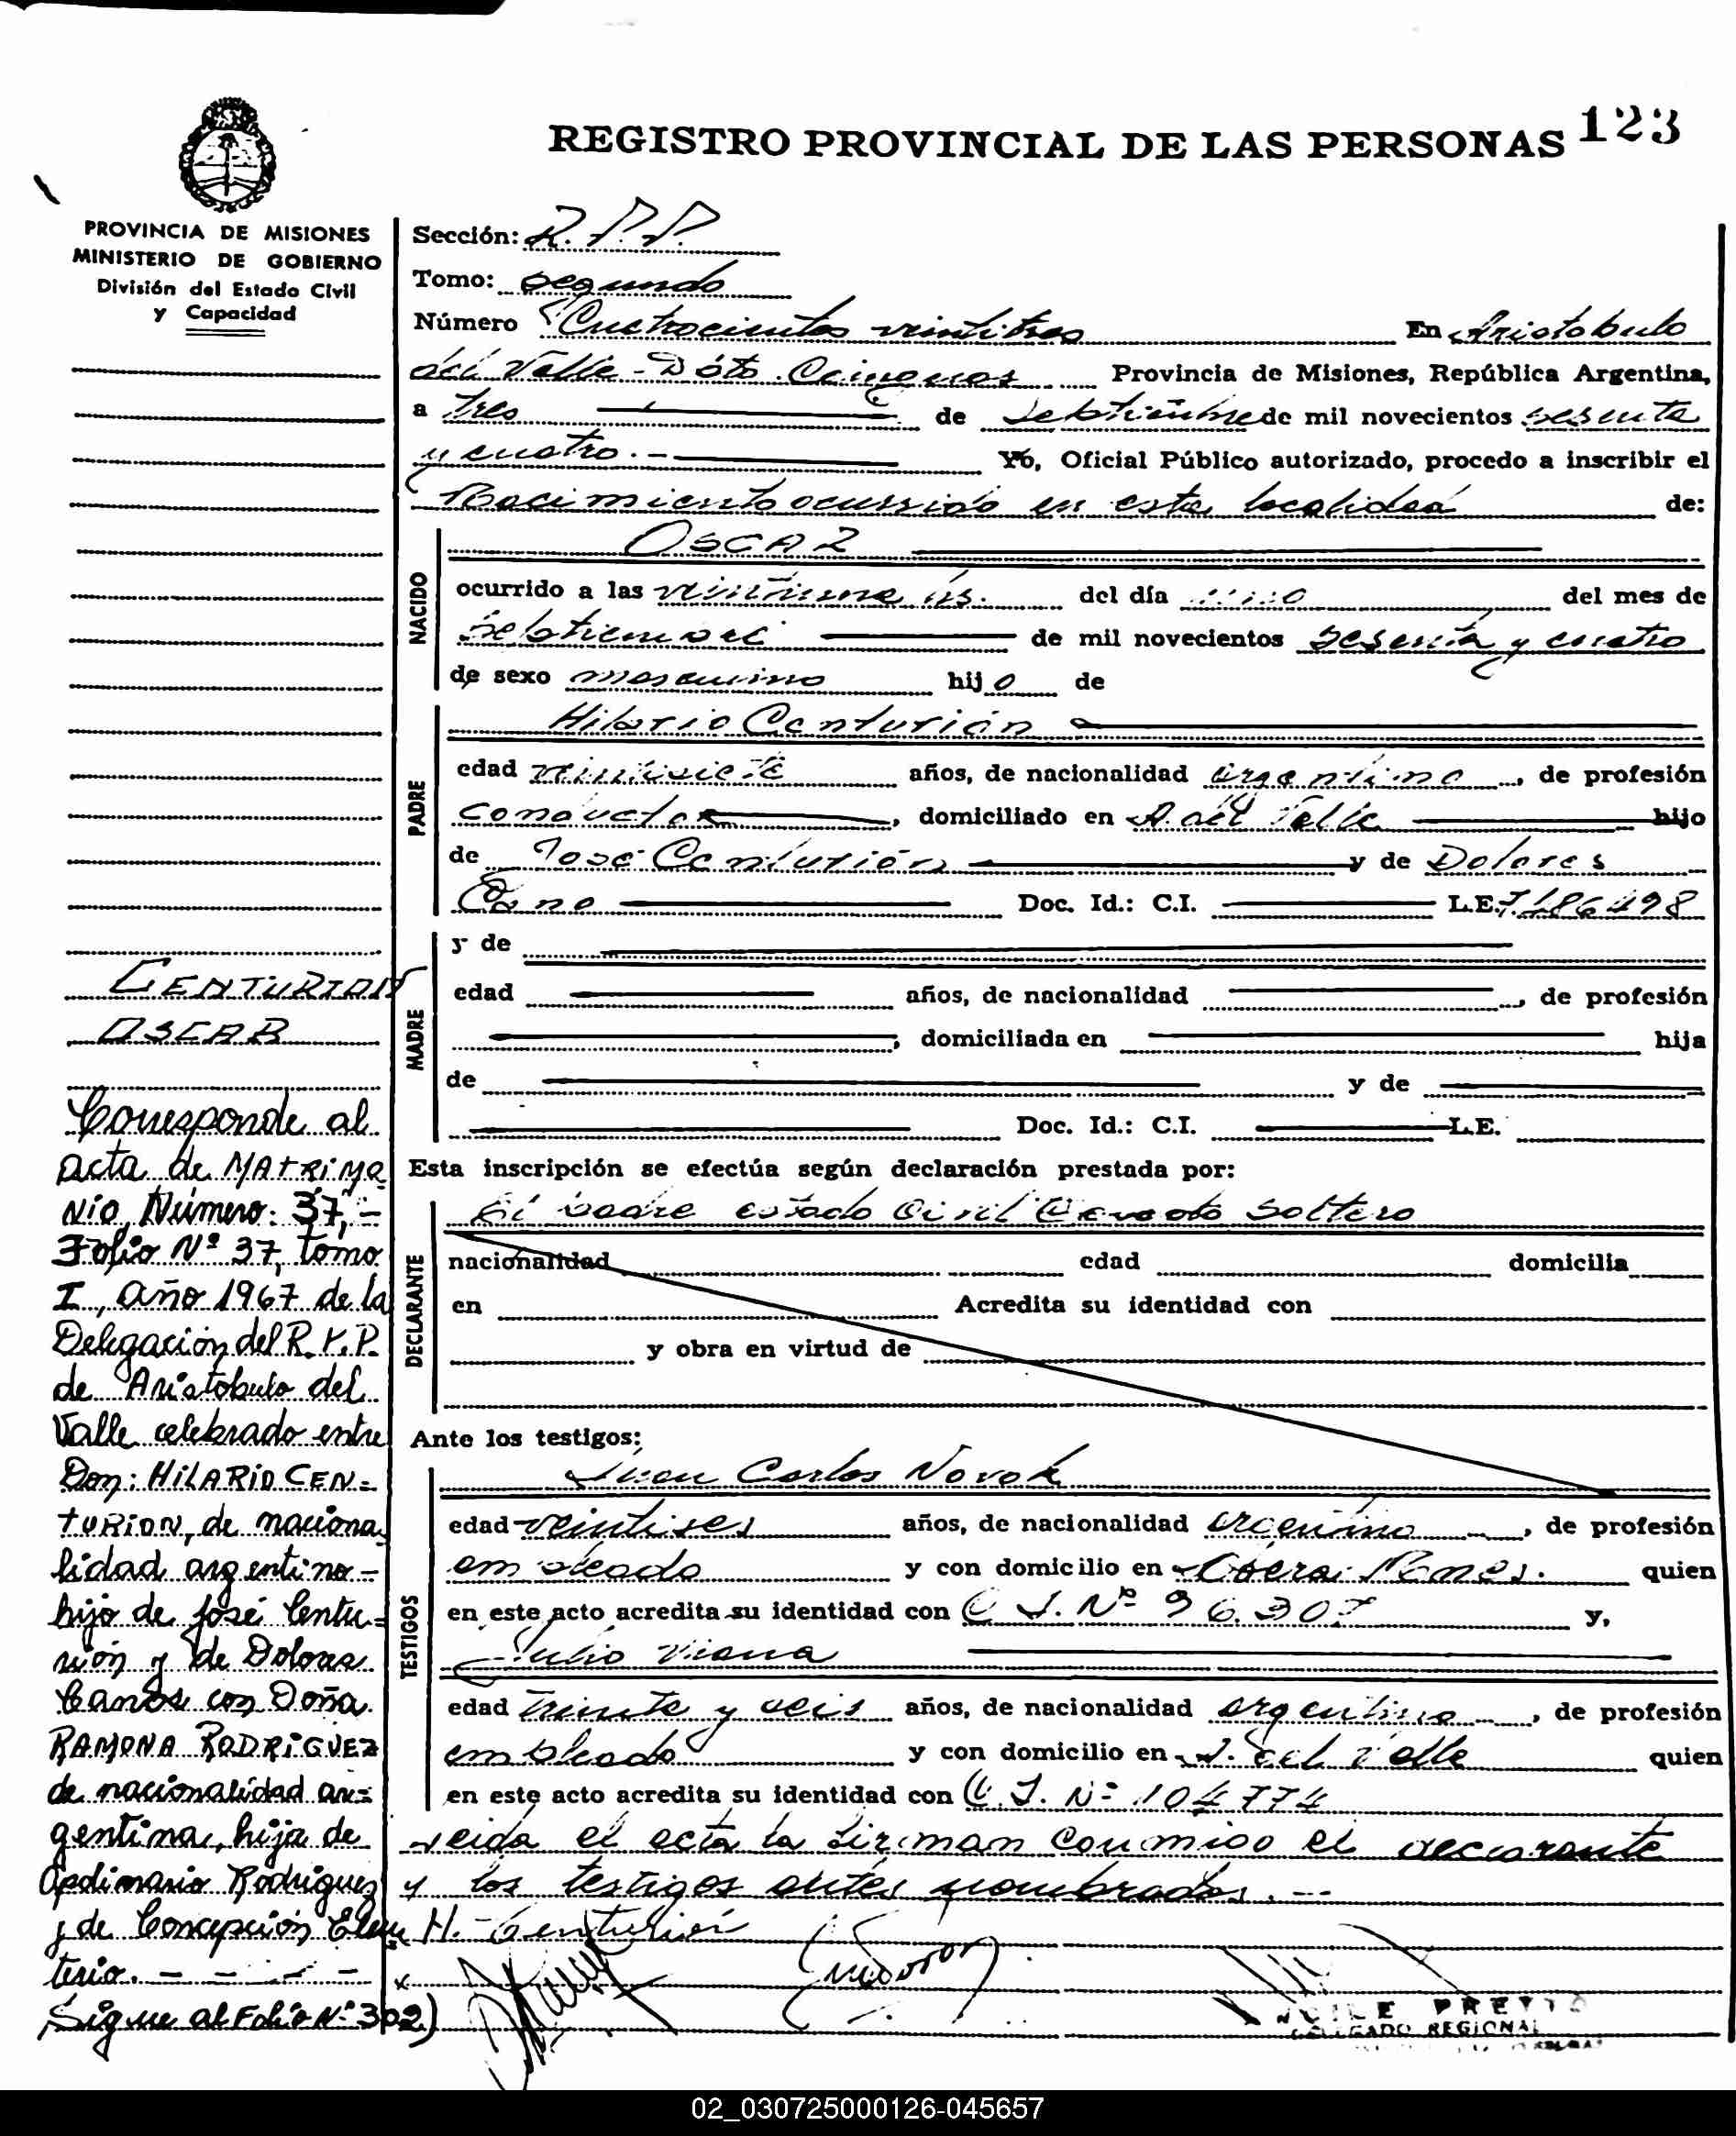 REGISTRO PROVINCIAL DE LAS PERSONAS 123
PROVINCIA DE MISIONES
MINISTERIO DE GOBIERNO
División del Estado Civil
y Capacidad
CENTURION
OSCAR
Corresponde al
acta de MATRIMO
NIO Número: 37,-
Folio Nº 37, tomo
I, año 1967 de la
Delegación del R.P.P.
de Aristobulo del
Valle celebrado entre
Don: HILARIO CEN-
TURION, de naciona
lidad argentino-
hijo de José Centu-
rión y de Dolores
Canos con Doña
RAMONA RODRIGUEZ
de nacionalidad ar-
gentina, hija de
Rodriguez
y de Concepción Eleu
terio. - - - - -
Sigue al Folio Nº 302)
Sección: R.P.P.
Tomo: segundo
Número Cuatrocientos veintitres En Aristobulo
del Valle - Dpto. Cainguas Provincia de Misiones, República Argentina,
a tres de Septiembre de mil novecientos sesenta
y cuatro.- Yo, Oficial Público autorizado, procedo a inscribir el
Nacimiento ocurrido en esta localidad de:
NACIDO
OSCAR
ocurrido a las veintiuna hs. del día uno del mes de
Septiembre de mil novecientos sesenta y cuatro
de sexo masculino hijo de
PADRE
Hilario Centurión
edad veintisiete años, de nacionalidad argentino, de profesión
conductor, domiciliado en A. del Valle hijo
de José Centurión y de Dolores
Cano Doc. Id.: C.I. L.E. 7.186498
MADRE
y de
edad años, de nacionalidad , de profesión
, domiciliada en hija
de y de
Doc. Id.: C.I. L.E.
Esta inscripción se efectúa según declaración prestada por:
DECLARANTE
El padre estado Civil soltero
nacionalidad edad domicilia
en Acredita su identidad con
y obra en virtud de
Ante los testigos:
TESTIGOS
Juan Carlos Novok
edad veintises años, de nacionalidad argentino, de profesión
empleado y con domicilio en Obera Mnes. quien
en este acto acredita su identidad con C.I. Nº 96.307 y,
Julio Viana
edad treinta y seis años, de nacionalidad argentino, de profesión
empleado y con domicilio en A. del Valle quien
en este acto acredita su identidad con C.I. Nº 104774
Leida el acta la firman conmigo el declarante
y los testigos antes nombrados.--
H. Centurión
DELEGADO REGIONAL
02_030725000126-045657